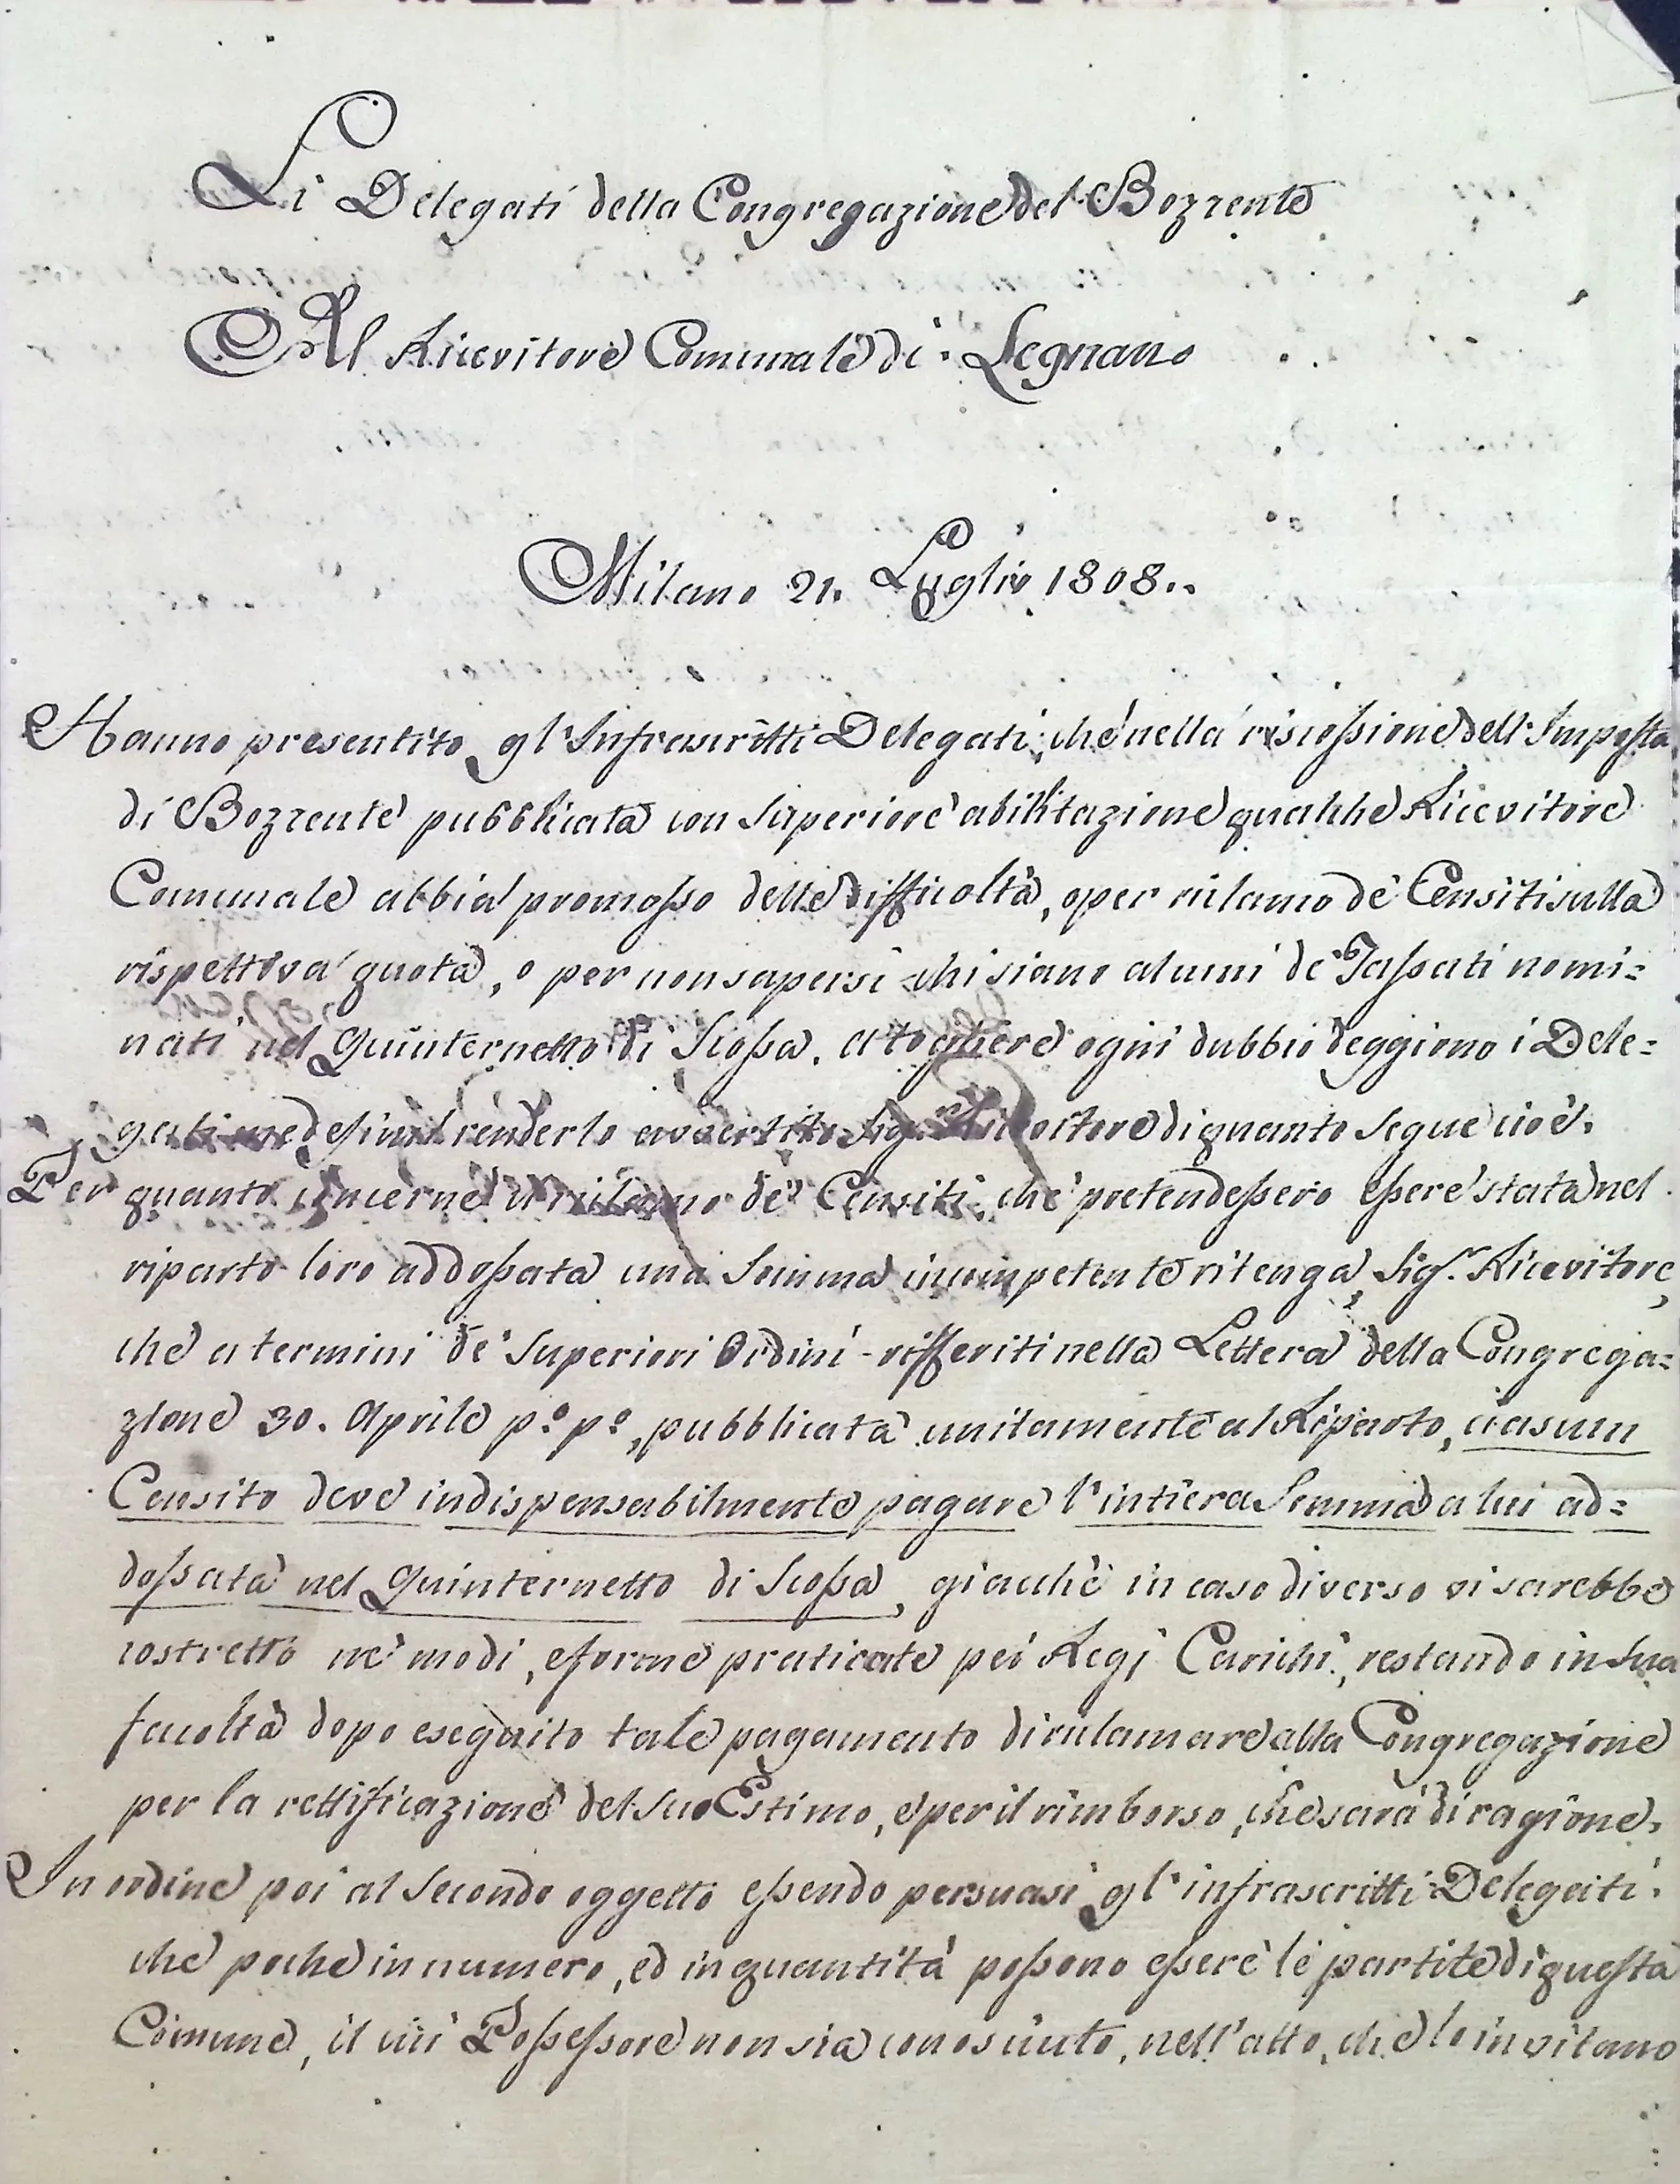 Li Delegati della Congregazione del Bozzente
Al Ricevitore Comunale di Legnano
Milano 21. Luglio 1808..
Hanno presentito gl'Infrascritti Delegati, che nella riscossione dell'Imposta
di Bozzente pubblicata con Superiore abilitazione qualche Ricevitore
Comunale abbia promosso delle difficoltà, o per riclamo de' Censiti sulla
rispettiva quota, o per non sapersi chi siano alcuni de' Tassati nomi=
nati nel Quinternetto di Scossa. A togliere ogni dubbio deggiono i Dele=
gati medesimi renderlo avvertito Sig.r Ricevitore di quanto segue cioè.
Per quanto concerne il riclamo de' Censiti, che pretendessero essere stata nel
riparto loro addossata una Somma incompetente ritenga, Sig.r Ricevitore,
che a termini de' Superiori Ordini rifferiti nella Lettera della Congrega=
zione 30. Aprile p.o p.o, pubblicata unitamente al Riparto, ciascun
Censito deve indispensabilmente pagare l'intiera Somma a lui ad=
dossata nel Quinternetto di Scossa, giacchè in caso diverso vi sarebbe
costretto ne' modi, e forme praticate pei Regj Carichi, restando in Sua
facoltà dopo eseguito tale pagamento di riclamare alla Congregazione
per la rettificazione del Suo Estimo, e per il rimborso, che sarà di ragione.
In ordine poi al Secondo oggetto essendo persuasi gl'infrascritti Delegati.
che poche in numero, ed in quantità possono essere le partite di questa
Comune, il cui Possessore non sia conosciuto, nell'atto, che lo invitano